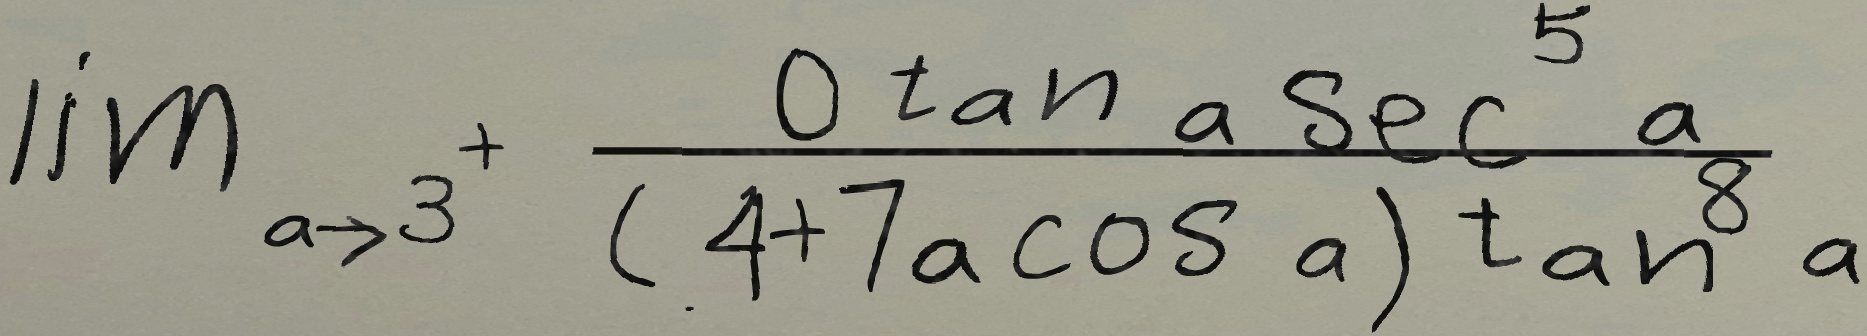 lim a→3⁺ \frac{0 tan a sec⁵ a}{(4+7a cos a) tan⁸ a}